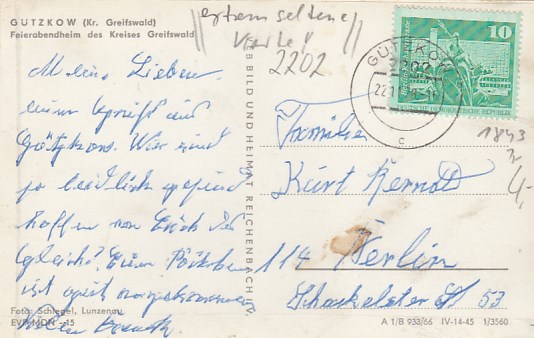 GÜTZKOW (Kr. Greifswald)
Feierabendheim des Kreises Greifswald
extrem seltene
Karte!
2202
GÜTZKOW
2202
c
10
DEUTSCHE DEMOKRATISCHE REPUBLIK
Meine Lieben
einen Gruß aus
Gützkow. Wir sind
so leidlich gesund
hoffen von Euch das
gleiche. Euer Päckchen
ist gut angekommen
BILD UND HEIMAT REICHENBACH V.
Familie
Kurt Berndt
114 Berlin
53
1843
4,-
Foto: Schlegel, Lunzenau
15
A 1/B 933/66 IV-14-45 1/3560